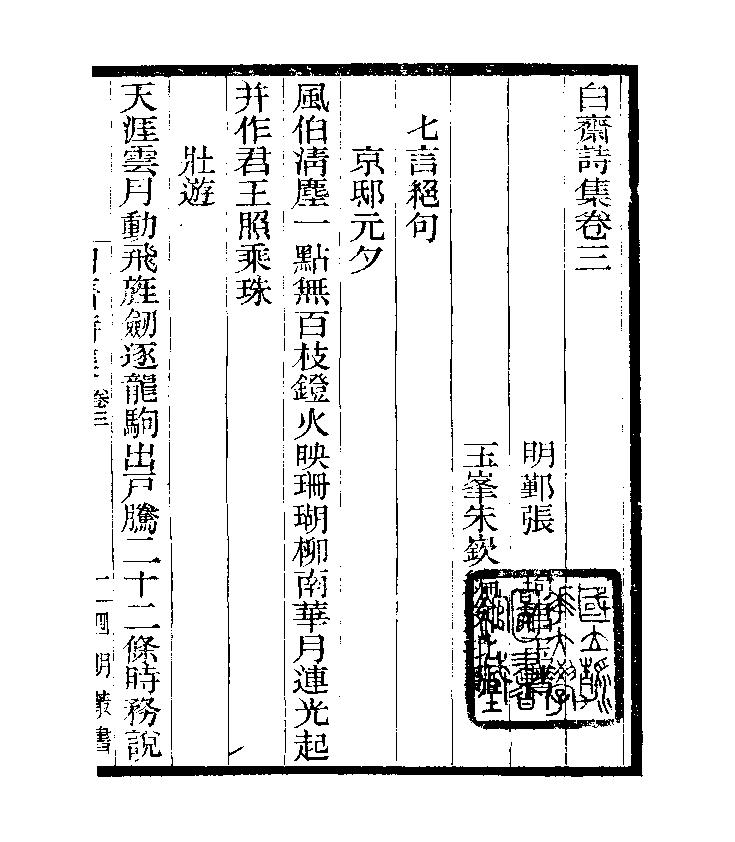 白齋詩集卷三
明鄞張琦
玉峯朱嶔
七言絕句
京邸元夕
風伯淸塵一點無百枝鐙火映珊瑚柳南華月連光起
并作君王照乘珠
壯遊
天涯雲月動飛旌劒逐龍駒出戸騰二十二條時務說
卷三
二四明叢書